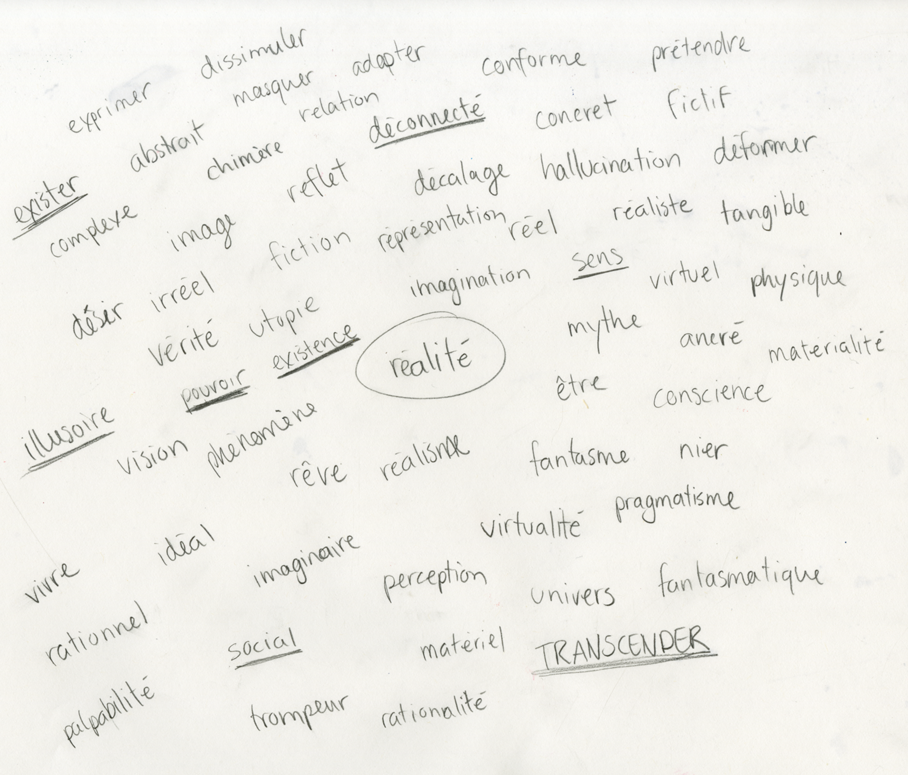 exprimer dissimuler
masquer adapter conforme prétendre
abstrait relation
exister chimère déconnecté concret fictif
complexe image reflet décalage hallucination déformer
fiction représentation réel réaliste tangible
désir irréel
vérité utopie imagination sens virtuel physique
existence réalité mythe ancré matérialité
illusoire pouvoir être conscience
vision phénomène
rêve réalisme fantasme nier
vivre idéal imaginaire virtualité pragmatisme
perception univers fantasmatique
rationnel social matériel TRANSCENDER
palpabilité trompeur rationalité